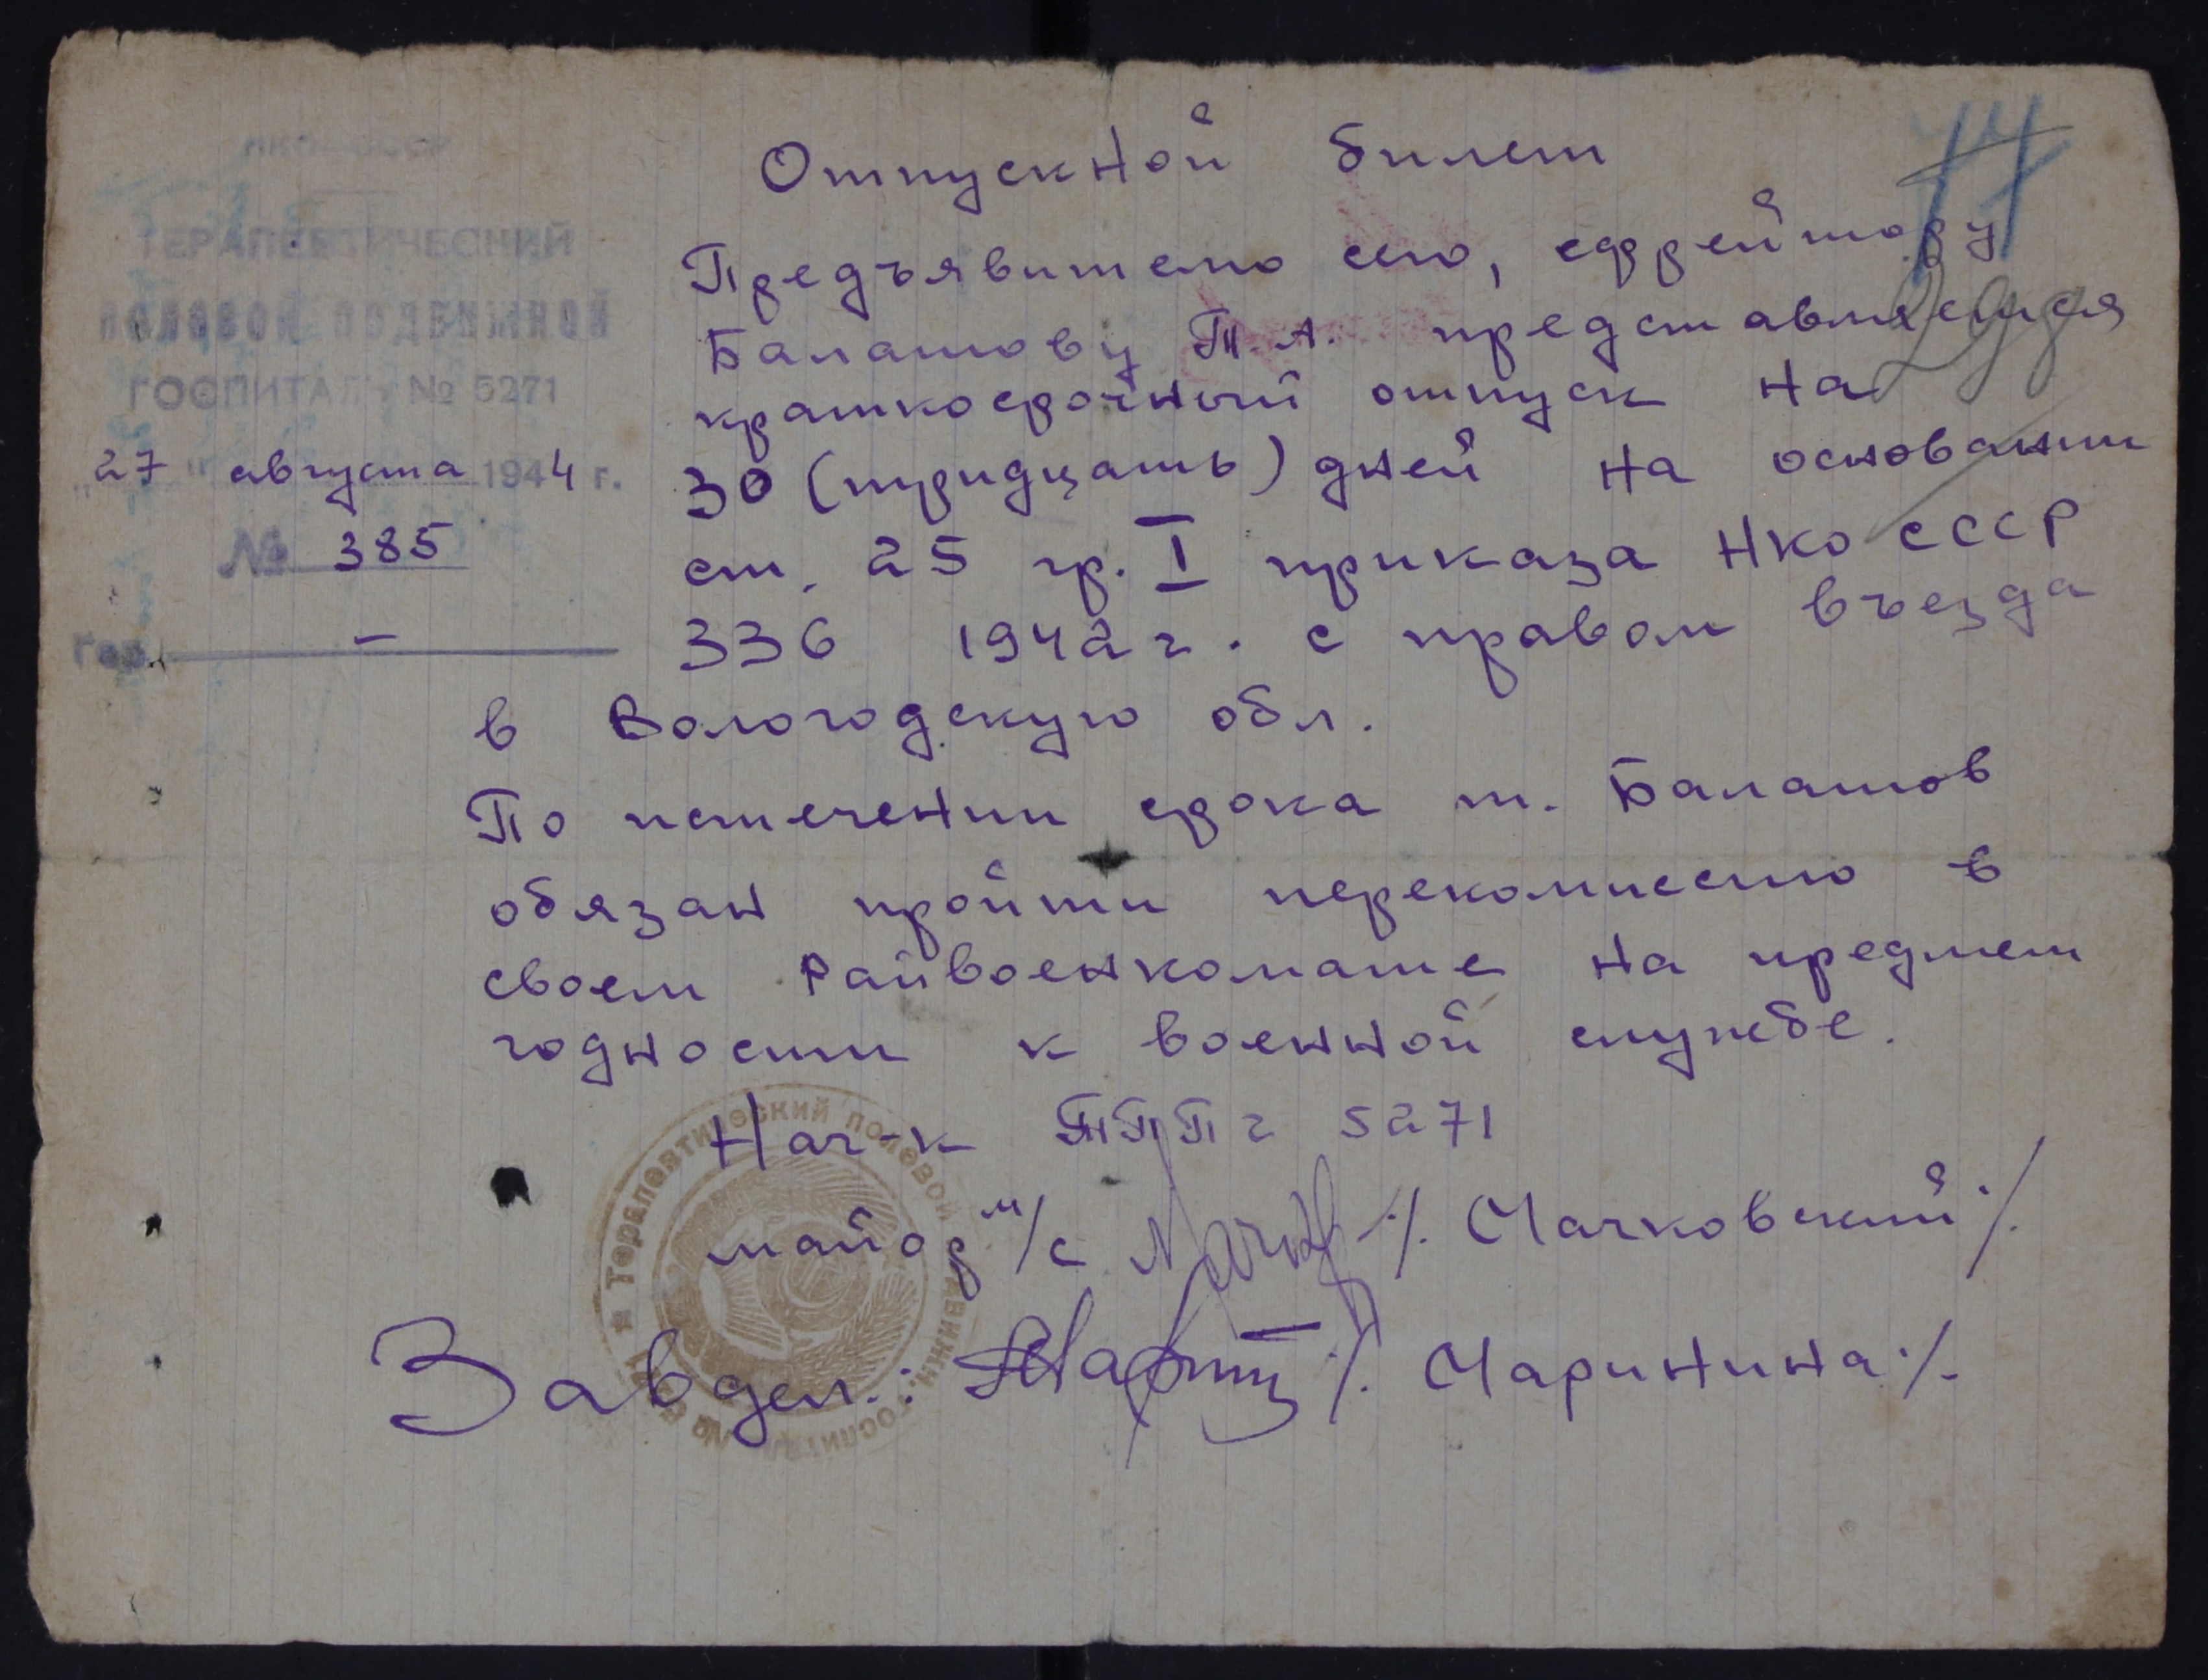 НКО—СССР
ТЕРАПЕВТИЧЕСКИЙ
ПОЛЕВОЙ ПОДВИЖНОЙ
ГОСПИТАЛЬ № 5271
"27" августа 1944 г.
№ 385
Гор. –
Отпускной билет
Предъявителю сего, ефрейтору
Балашову Т.А. представляется
краткосрочный отпуск на
30 (тридцать) дней на основании
ст. 25 гр. I приказа НКО СССР
336 1942 г. с правом въезда
в Вологодскую обл.
По истечении срока т. Балашов
обязан пройти перекомиссию в
своем Райвоенкомате на предмет
годности к военной службе.
Нач-к ТППГ 5271
майор м/с ./. Мачковский ./.
Завдел.: ./. Маринина ./.
Терапевтический полевой подвижной госпиталь №